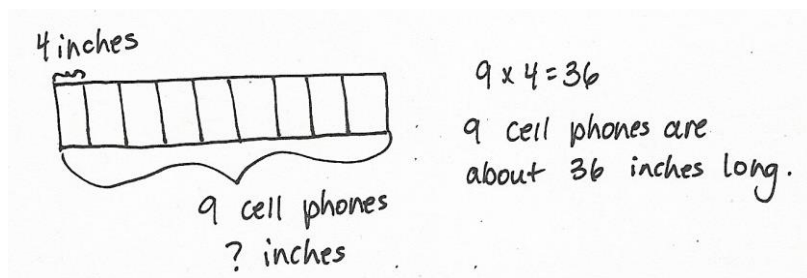 4 inches
9 cell phones
? inches
9 x 4 = 36
9 cell phones are
about 36 inches long.